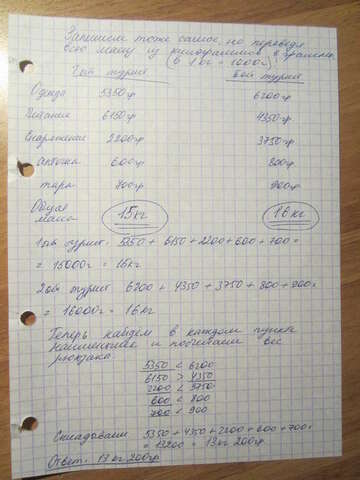 Запишем тоже самое, но переведя
всю массу из килограммов в граммы
(в 1 кг = 1000г)
1ый турист 2ой турист
Одежда 5350гр 6200гр
Питание 6150гр 4350гр
Снаряжение 2200гр 3750гр
Аптечка 600гр 800гр
тара 700гр 900гр
Общая
масса 15кг 16кг
1ый турист: 5350 + 6150 + 2200 + 600 + 700 =
= 15000г = 15кг
2ой турист 6200 + 4350 + 3750 + 800 + 900=
= 16000г = 16кг
Теперь найдем в каждом пункте
наименьшее и посчитаем вес
рюкзака:
5350 < 6200
6150 > 4350
2200 < 3750
600 < 800
700 < 900
Складываем 5350 + 4350 + 2200 + 600 + 700=
= 13200 = 13кг 200гр
Ответ. 13кг 200гр.